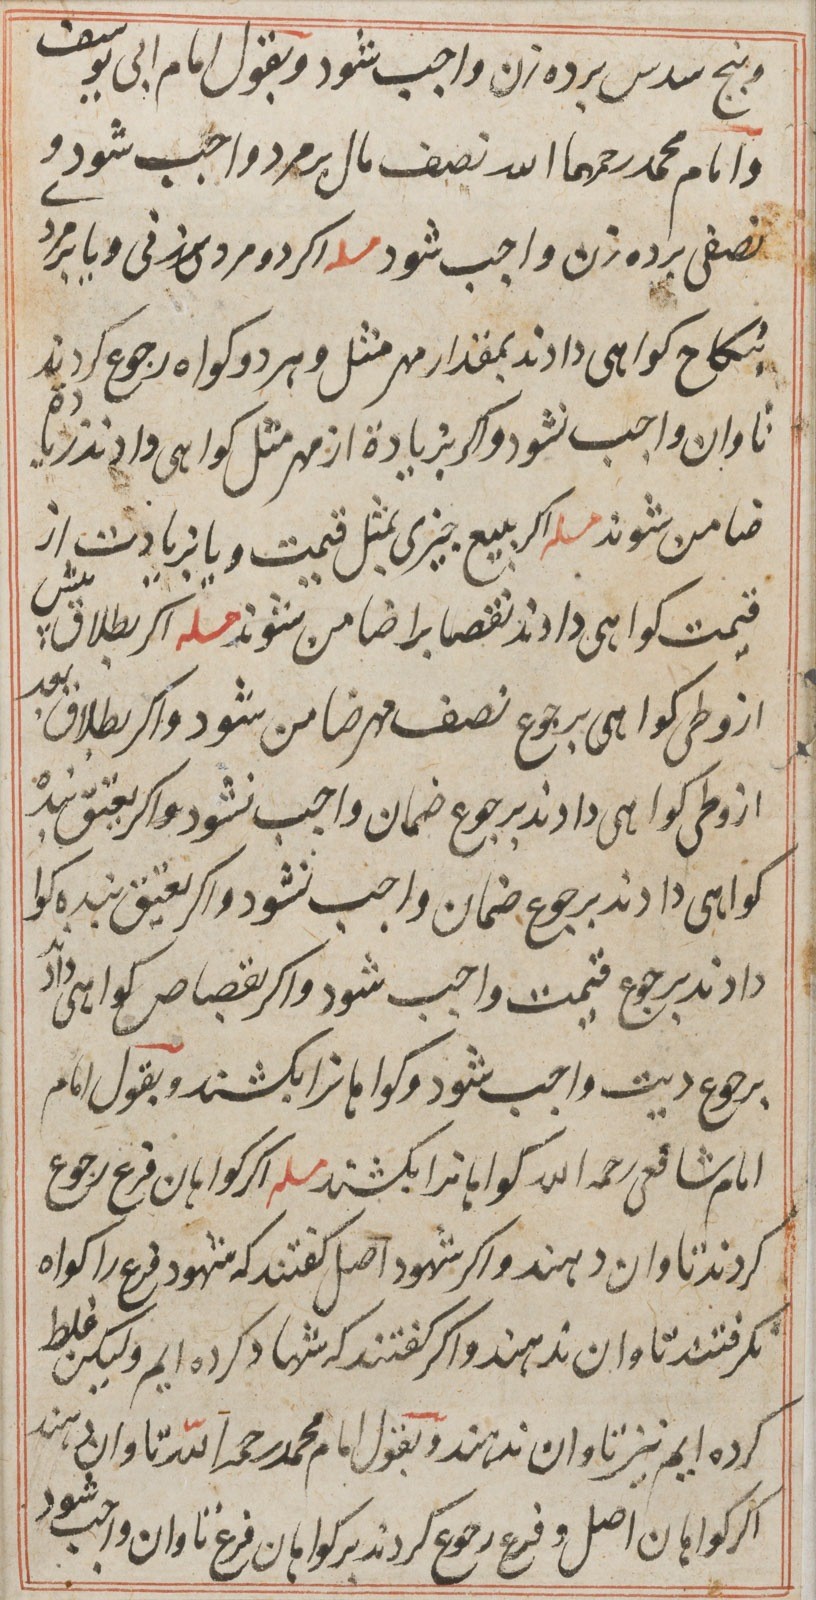 و پنج سدس بر ده زن واجب شود و بقول امام ابی یوسف
و امام محمد رحمهما الله نصف مال بر مرد واجب شود و
نصفی بر ده زن واجب شود مسله اکر دو مرد بر زنی و یا بر مرد
بنکاح کواهی دادند بمقدار مهر مثل و هر دو کواه رجوع کردند
تاوان واجب نشود و اکر بزیادة از مهر مثل کواهی دادند زیادة
ضامن شوند مسله اکر ببیع چیزی بمثل قیمت و یا بزیادت از
قیمت کواهی دادند نقصانرا ضامن شوند مسله اکر بطلاق پیش
از وطی کواهی برجوع نصف مهر ضامن شود و اکر بطلاق بعد
از وطی کواهی دادند برجوع ضمان واجب نشود و اکر بعتق بنده
کواهی دادند برجوع ضمان واجب نشود و اکر بعتق بنده کوا
دادند برجوع قیمت واجب شود و اکر بقصاص کواهی دادند
برجوع دیت واجب شود و کواهانرا بکشند و بقول امام
امام شافعی رحمه الله کواهانرا بکشند مسله اکر کواهان فرع رجوع
کردند تاوان دهند و اکر شهود اصل کفتند که شهود فرع را کواه
نکرفتند تاوان ندهند و اکر کفتند که شهاد کرده ایم ولیکن غلط
کرده ایم نیز تاوان ندهند و بقول امام محمد رحمه الله تاوان دهند
اکر کواهان اصل و فرع رجوع کردند بر کواهان فرع تاوان واجب شود